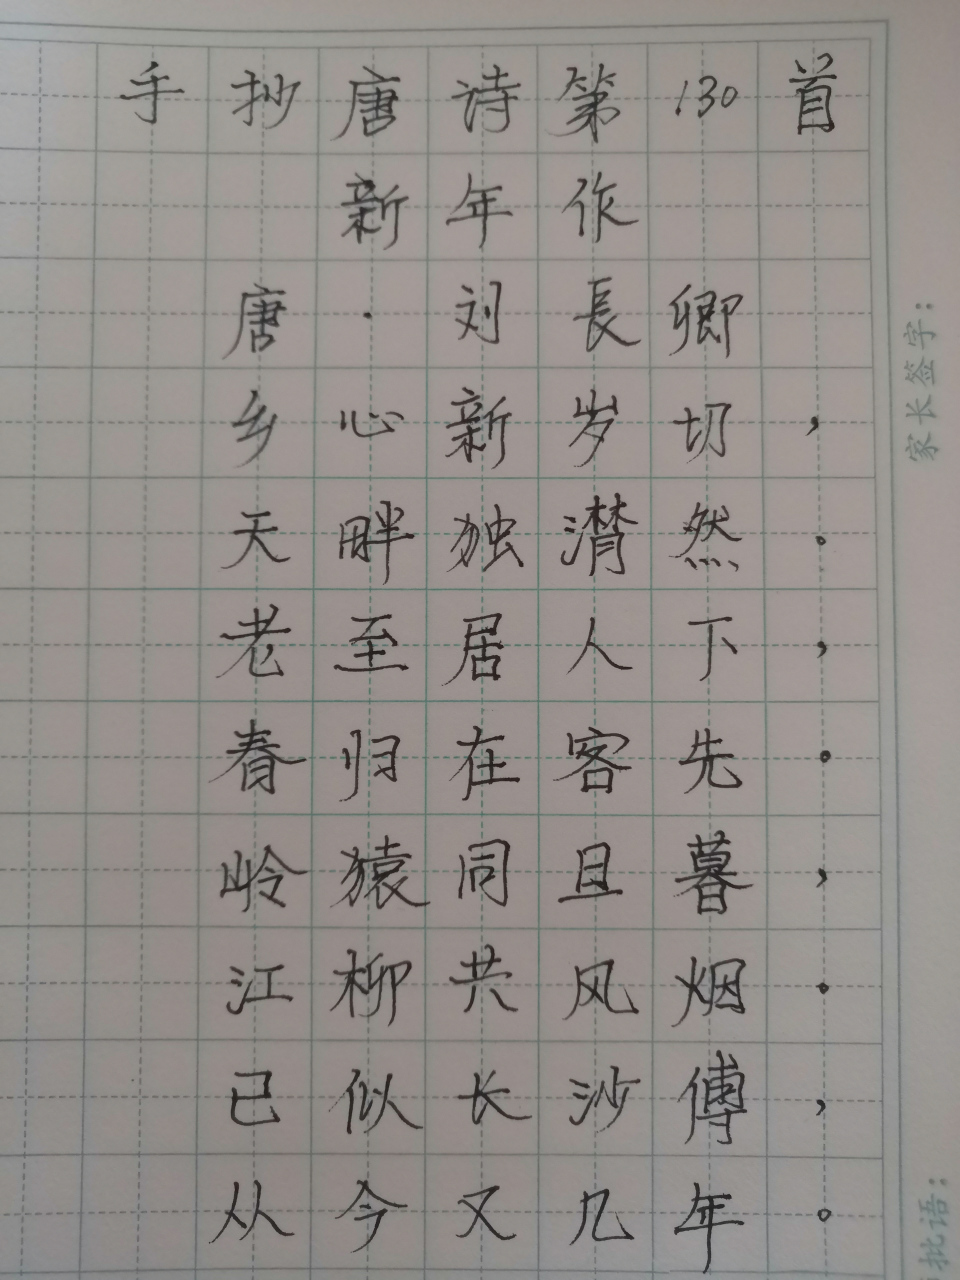 手抄唐诗第130首
新年作
唐·刘長卿
乡心新岁切，
天畔独潸然。
老至居人下，
春归在客先。
岭猿同旦暮，
江柳共风烟。
已似长沙傅，
从今又几年。
家长签字：
批语：